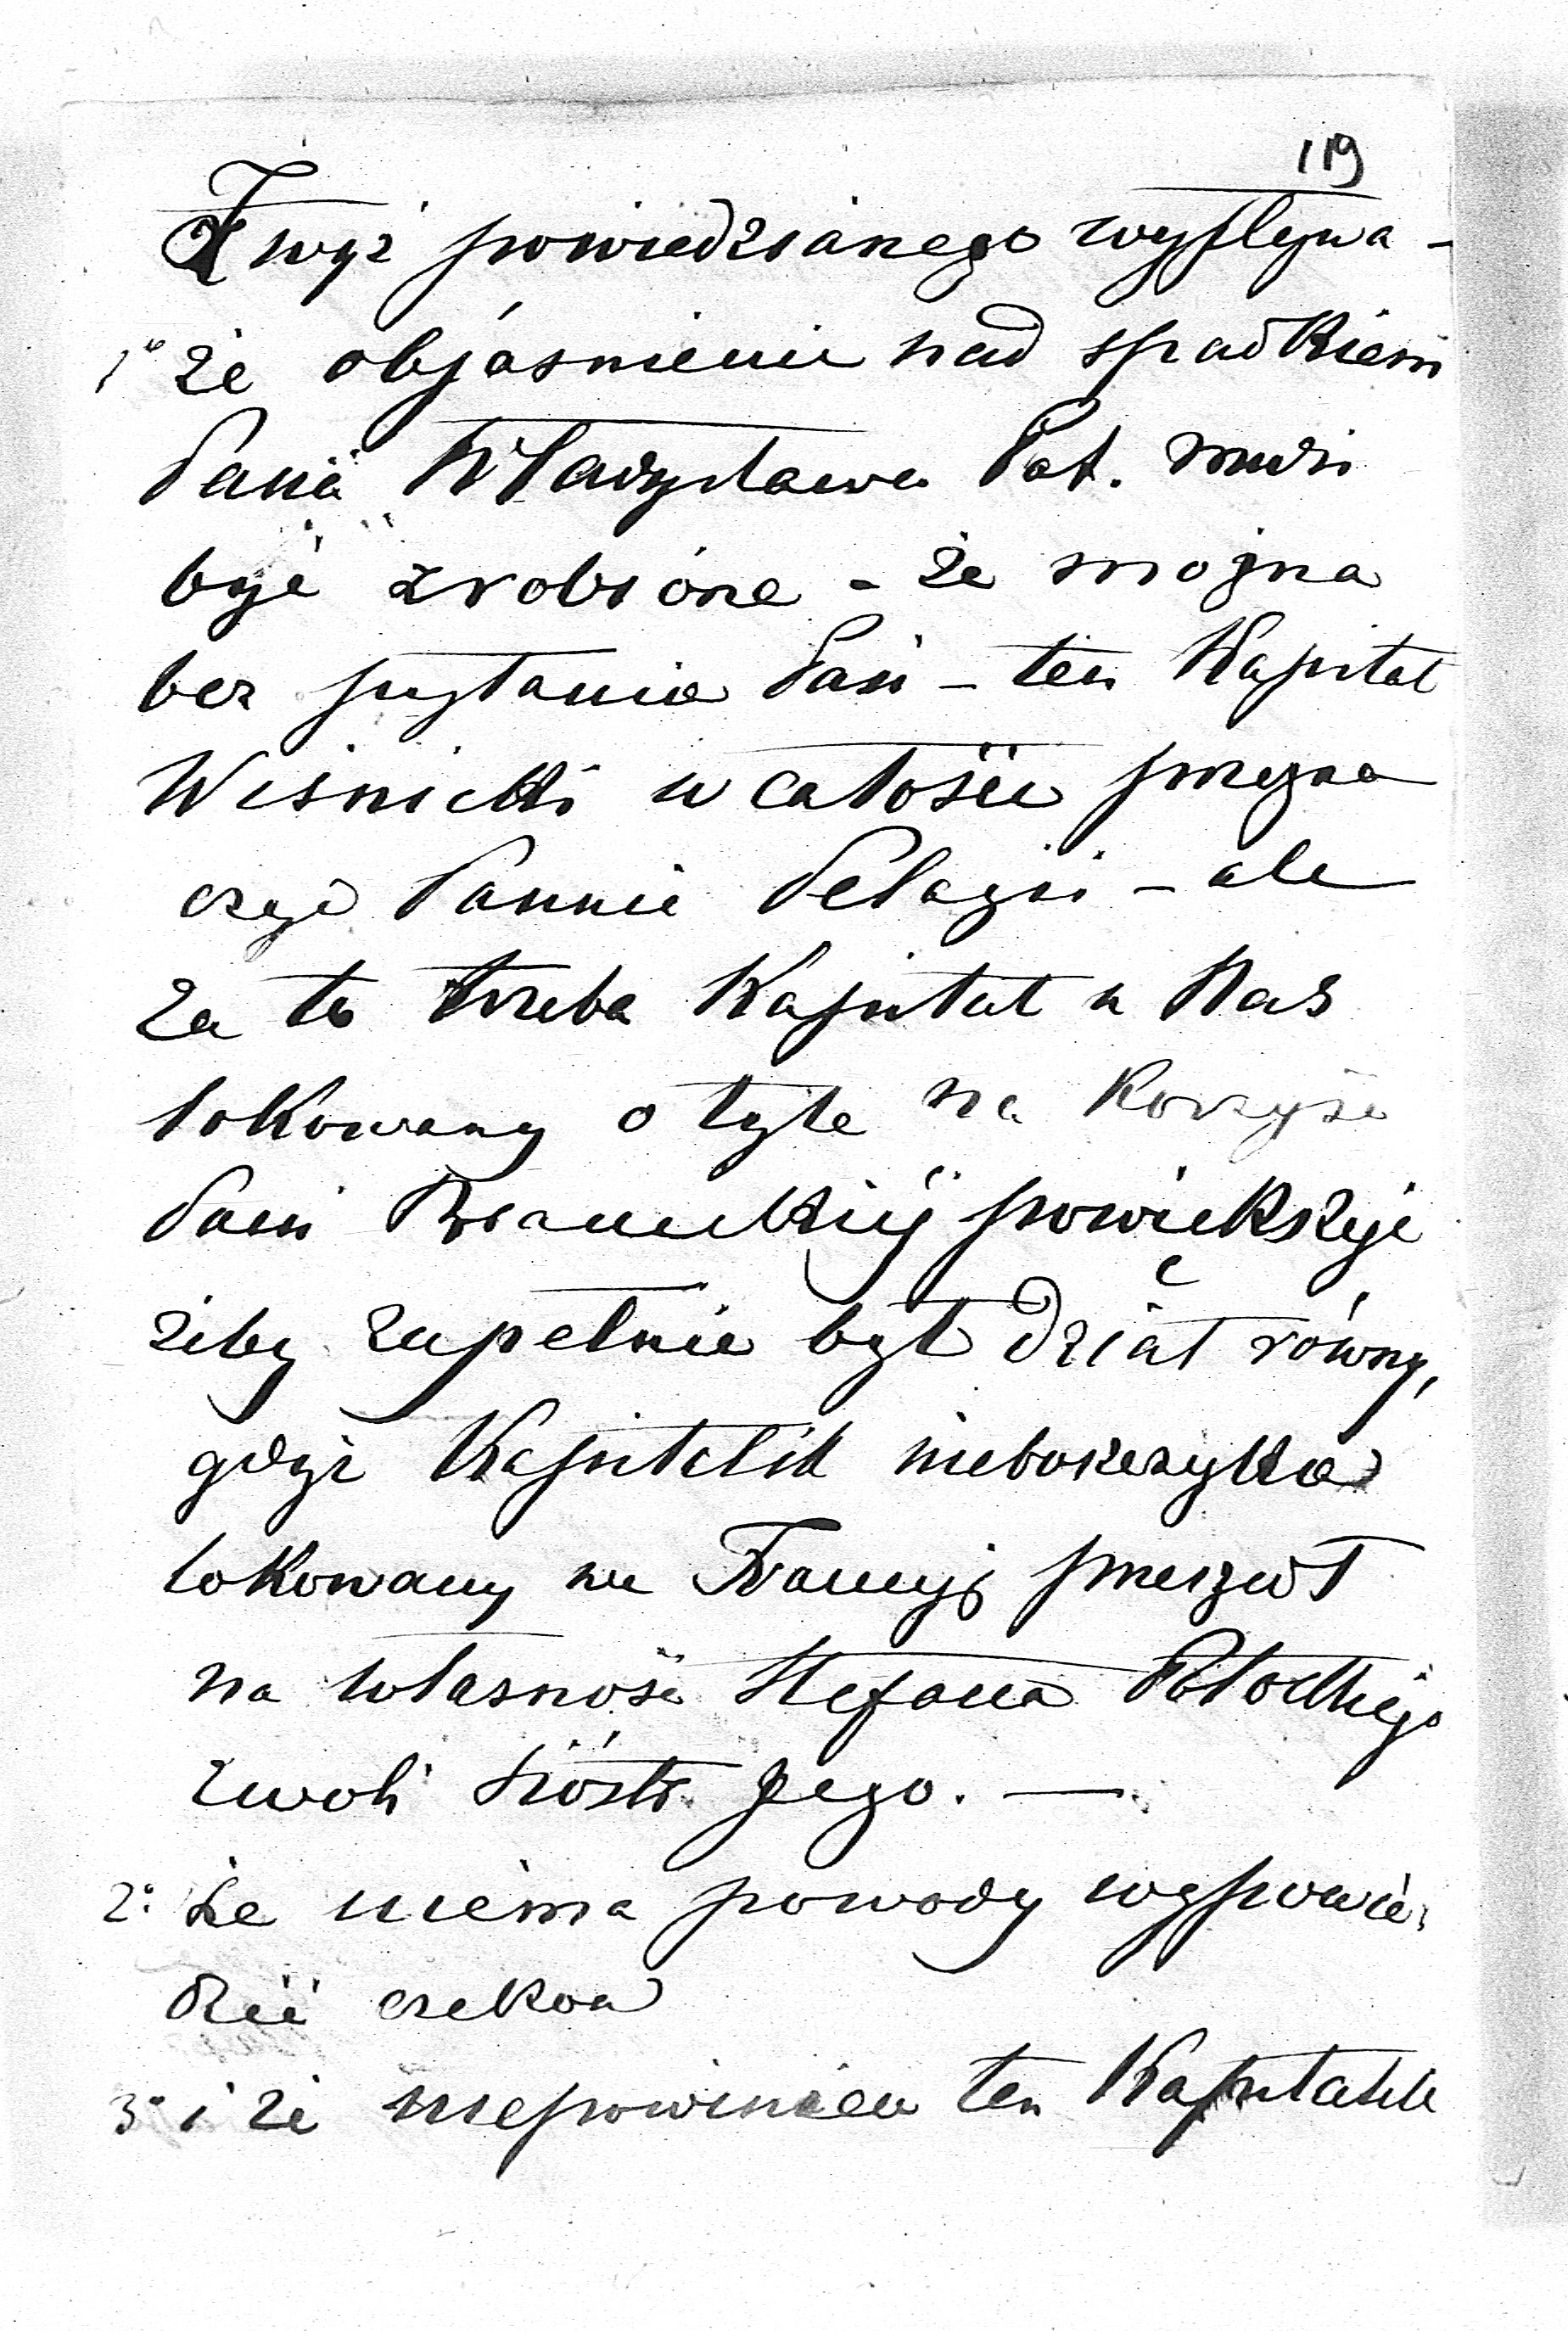 119
Z wyż powiedzianego wypływa -
1º że objaśnienie nad spadkiem
Pana Władysława Pot. musi
być zrobione - że można
bez pytania Pań - ten Kapitał
Wiśnicki w całości przezna
czyć Pannie Pelagii - ale
za to trzeba Kapitał u Nas
lokowany o tyle na Korzyść
Pani Branickiéj powiększyć
żeby zupełnie był dział równy,
gdyż Kapitalik nieboszczyka
lokowany we Francyi przeszedł
na własność Stefana Potockiego
z woli Sióstr Jego. —
2º że niema powody wypowie
dzieć czekoa
3º i że niepowinien ten Kapitalik